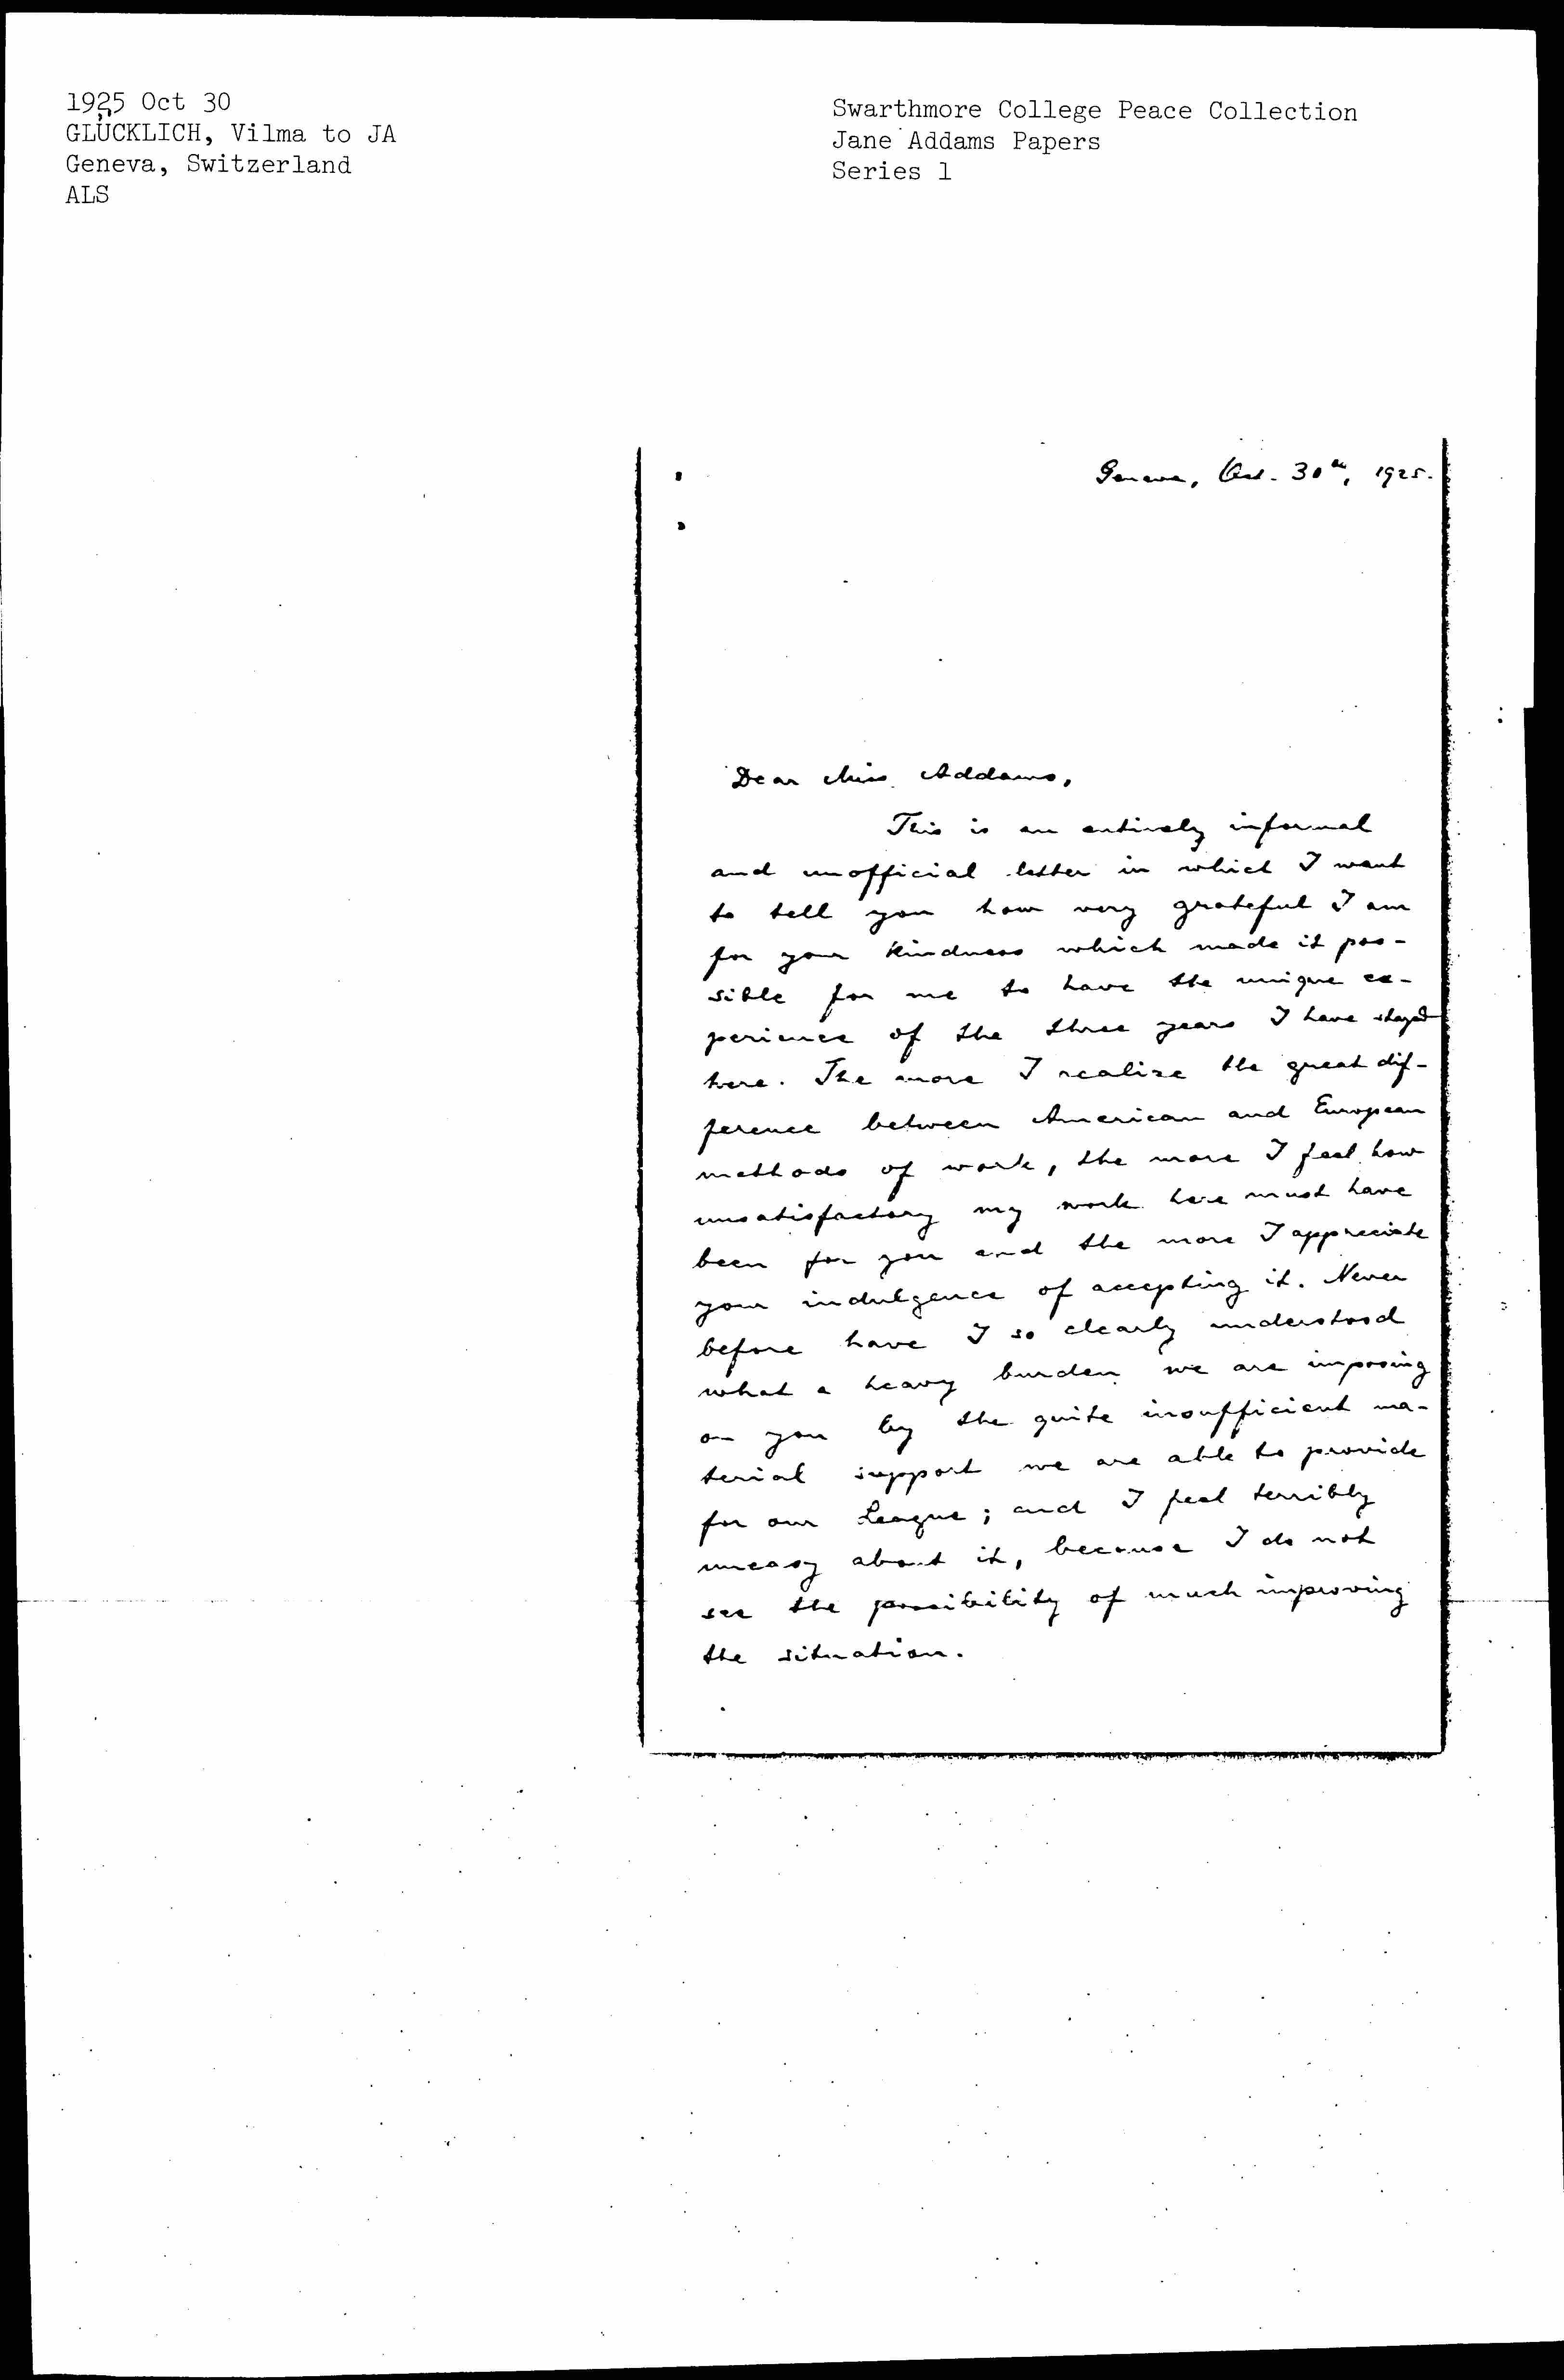 1925 Oct 30
GLÜCKLICH, Vilma to JA
Geneva, Switzerland
ALS
Swarthmore College Peace Collection
Jane Addams Papers
Series 1
Geneva, Oct. 30th, 1925.
Dear Miss Addams,
This is an entirely informal
and unofficial letter in which I want
to tell you how very grateful I am
for your kindness which made it pos-
sible for me to have the unique ex-
perience of the three years I have stayed
here. The more I realize the great dif-
ference between American and European
methods of work, the more I feel how
unsatisfactory my work here must have
been for you and the more I appreciate
your indulgence of accepting it. Never
before have I so clearly understood
what a heavy burden we are imposing
on you by the quite insufficient ma-
terial support we are able to provide
for our League; and I feel terribly
uneasy about it, because I do not
see the possibility of much improving
the situation.